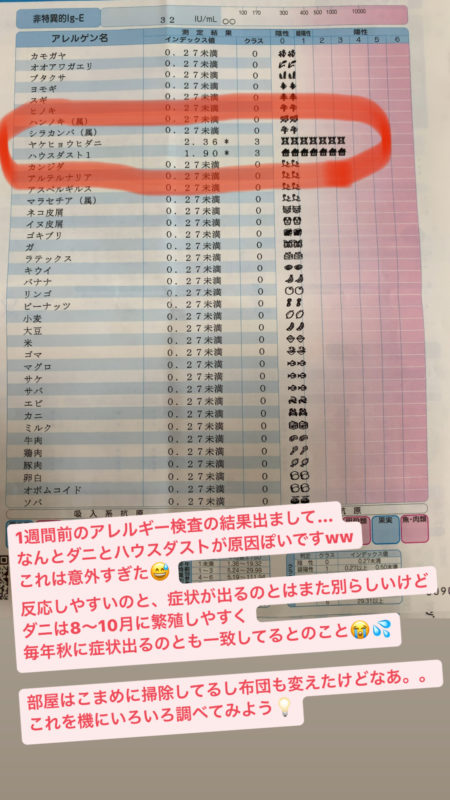 非特異的Ig-E 32 IU/mL 100 170 300 1000 3000 10000
アレルゲン名 測定結果 インデックス値 クラス 陰性 0 疑陽性 1 陽性 2 3 4 5 6
カモガヤ 0.27未満 0
オオアワガエリ 0.27未満 0
ブタクサ 0.27未満 0
ヨモギ 0.27未満 0
スギ 0.27未満 0
ヒノキ 0.27未満 0
ハンノキ(属) 0.27未満 0
シラカンバ(属) 0.27未満 0
ヤケヒョウヒダニ 2.36* 3
ハウスダスト1 1.90* 3
カンジダ 0.27未満 0
アルテルナリア 0.27未満 0
アスペルギルス 0.27未満 0
マラセチア(属) 0.27未満 0
ネコ皮屑 0.27未満 0
イヌ皮屑 0.27未満 0
ゴキブリ 0.27未満 0
ガ 0.27未満 0
ラテックス 0.27未満 0
キウイ 0.27未満 0
バナナ 0.27未満 0
リンゴ 0.27未満 0
ピーナッツ 0.27未満 0
小麦 0.27未満 0
大豆 0.27未満 0
米 0.27未満 0
ゴマ 0.27未満 0
マグロ 0.27未満 0
サケ 0.27未満 0
サバ 0.27未満 0
エビ 0.27未満 0
カニ 0.27未満 0
ミルク 0.27未満 0
牛肉 0.27未満 0
鶏肉 0.27未満 0
豚肉 0.27未満 0
卵白 0.27未満 0
オボムコイド 0.27未満 0
ソバ 0.27未満 0
吸入系抗原
果実 魚・肉類
1週間前のアレルギー検査の結果出まして...
なんとダニとハウスダストが原因ぽいですww
これは意外すぎた😅
反応しやすいのと、症状が出るのとはまた別らしいけど
ダニは8〜10月に繁殖しやすく
毎年秋に症状出るのとも一致してるとのこと😭💦
部屋はこまめに掃除してるし布団も変えたけどなあ。。
これを機にいろいろ調べてみよう💡